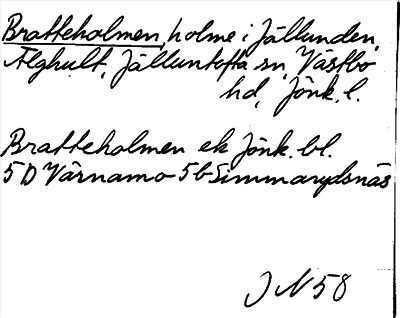 Bratteholmen, holme i Jällunden,
Älghult, Jälluntofta sn, Västbo
hd, Jönk. l.
Bratteholmen ek Jönk. bl.
5D Värnamo 5b Simmarydsnäs
J N 58